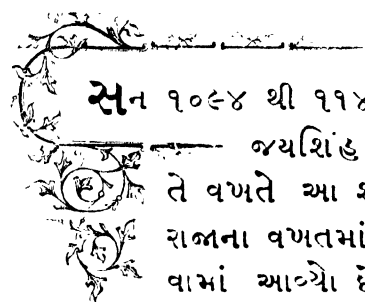 સન ૧૦૯૪ થી ૧૧૪
જયશિંહ
તે વખતે આ
રાજાના વખતમાં
વામાં આવ્યો